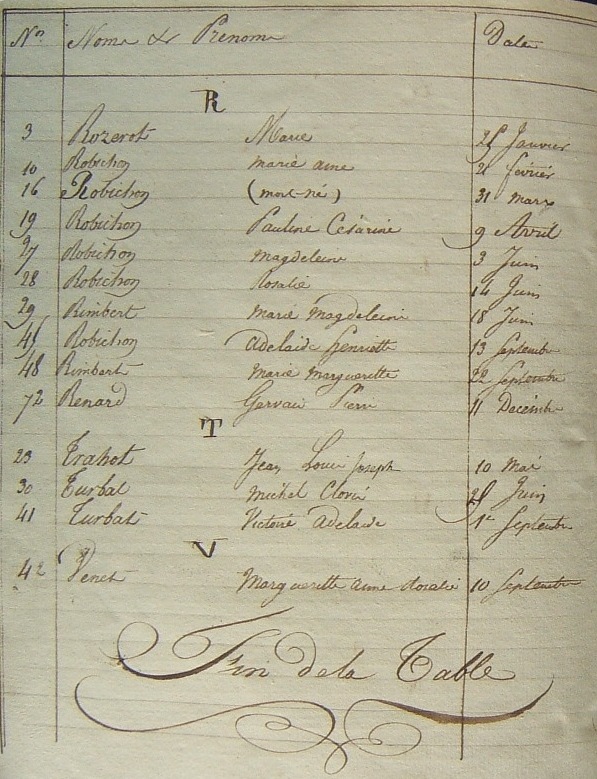 Nos Noms & Prénoms Date
R
3 Rozerot Marie 25 Janvier
10 Robichon marie anne 21 février
16 Robichon (mort-né) 31 mars
19 Robichon Pauline Césarine 9 Avril
27 Robichon magdeleine 3 Juin
28 Robichon Rosalie 14 Juin
29 Rimbert marie magdeleine 18 Juin
45 Robichon adelaide henriette 13 Septembre
48 Rimbert marie marguerette 22 Septembre
72 Renard Gervais Pierre 11 Décembre
T
23 Trahot Jean Louis Joseph 10 Mai
30 Turbat michel Clovis 25 Juin
41 Turbat Victoire adelaide 1er Septembre
V
42 Venet Marguerette anne Rosalie 10 Septembre
Fin de la Table